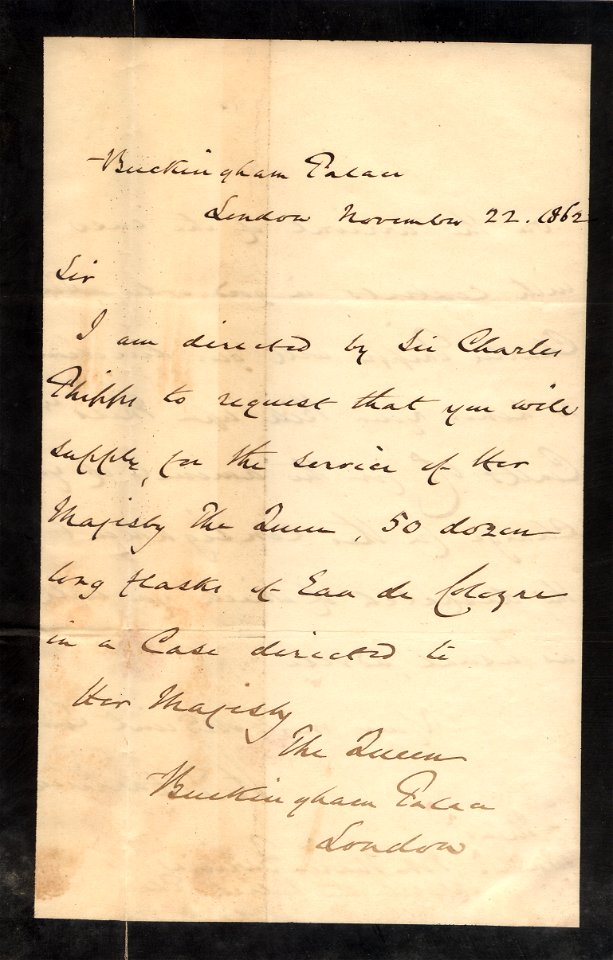 Buckingham Palace
London November 22. 1862
Sir
I am directed by Sir Charles
Phipps to request that you will
supply, for the service of Her
Majesty The Queen, 50 dozen
long flasks of Eau de Cologne
in a Case directed to
Her Majesty
The Queen
Buckingham Palace
London